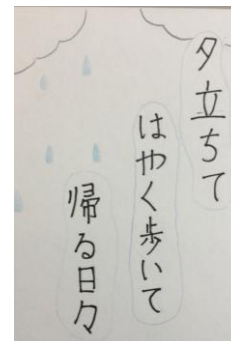 夕立ちて
はやく歩いて
帰る日々